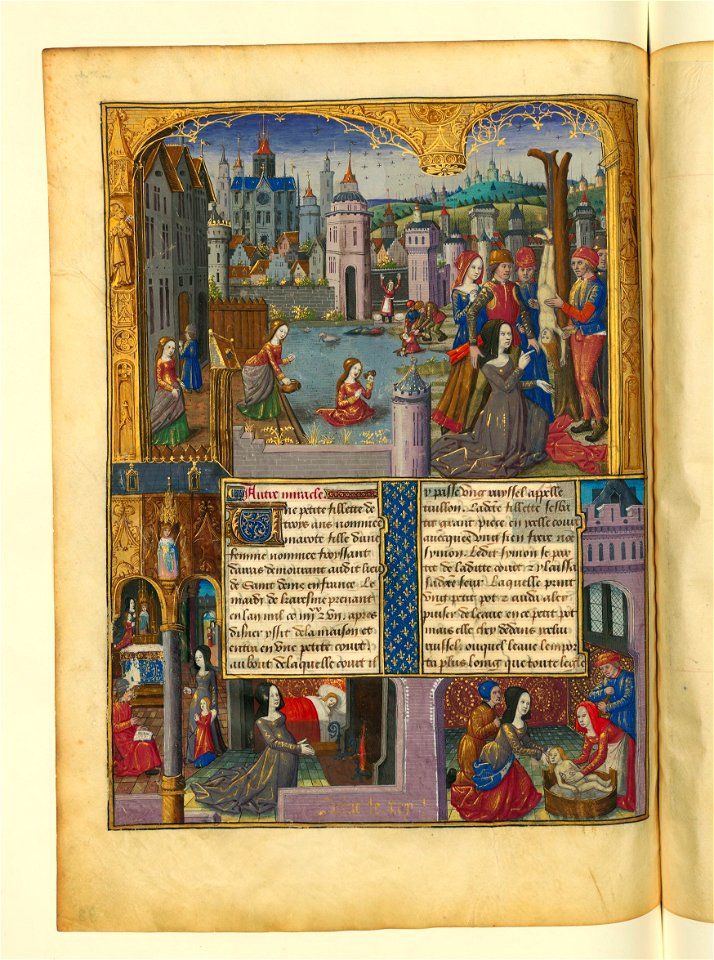 Autre miracle
Une petite fillette de
troys ans nommee
marote fille dune
femme nommee troyssant
daras demourant audit lieu
de saint denis en france. Le
mardi de karesme prenant
en lan mil cc iiiixx & un. apres
disner yssit de la maison et
entra en une petite court
au bout de laquelle court il
y passe ung ruyssel appelle
rullon. Ladite fillette sesba
tit grant piece en icelle court
avecques ung sien frere no
symon. Ledit symon se par
tit de ladite court & y laissa
sadite seur. Laquelle print
ung petit pot & cuida aler
puiser de leaue en ce petit pot
mais elle chey dedans icelui
ruissel, ouquel leaue lempor
ta plus loing que toute